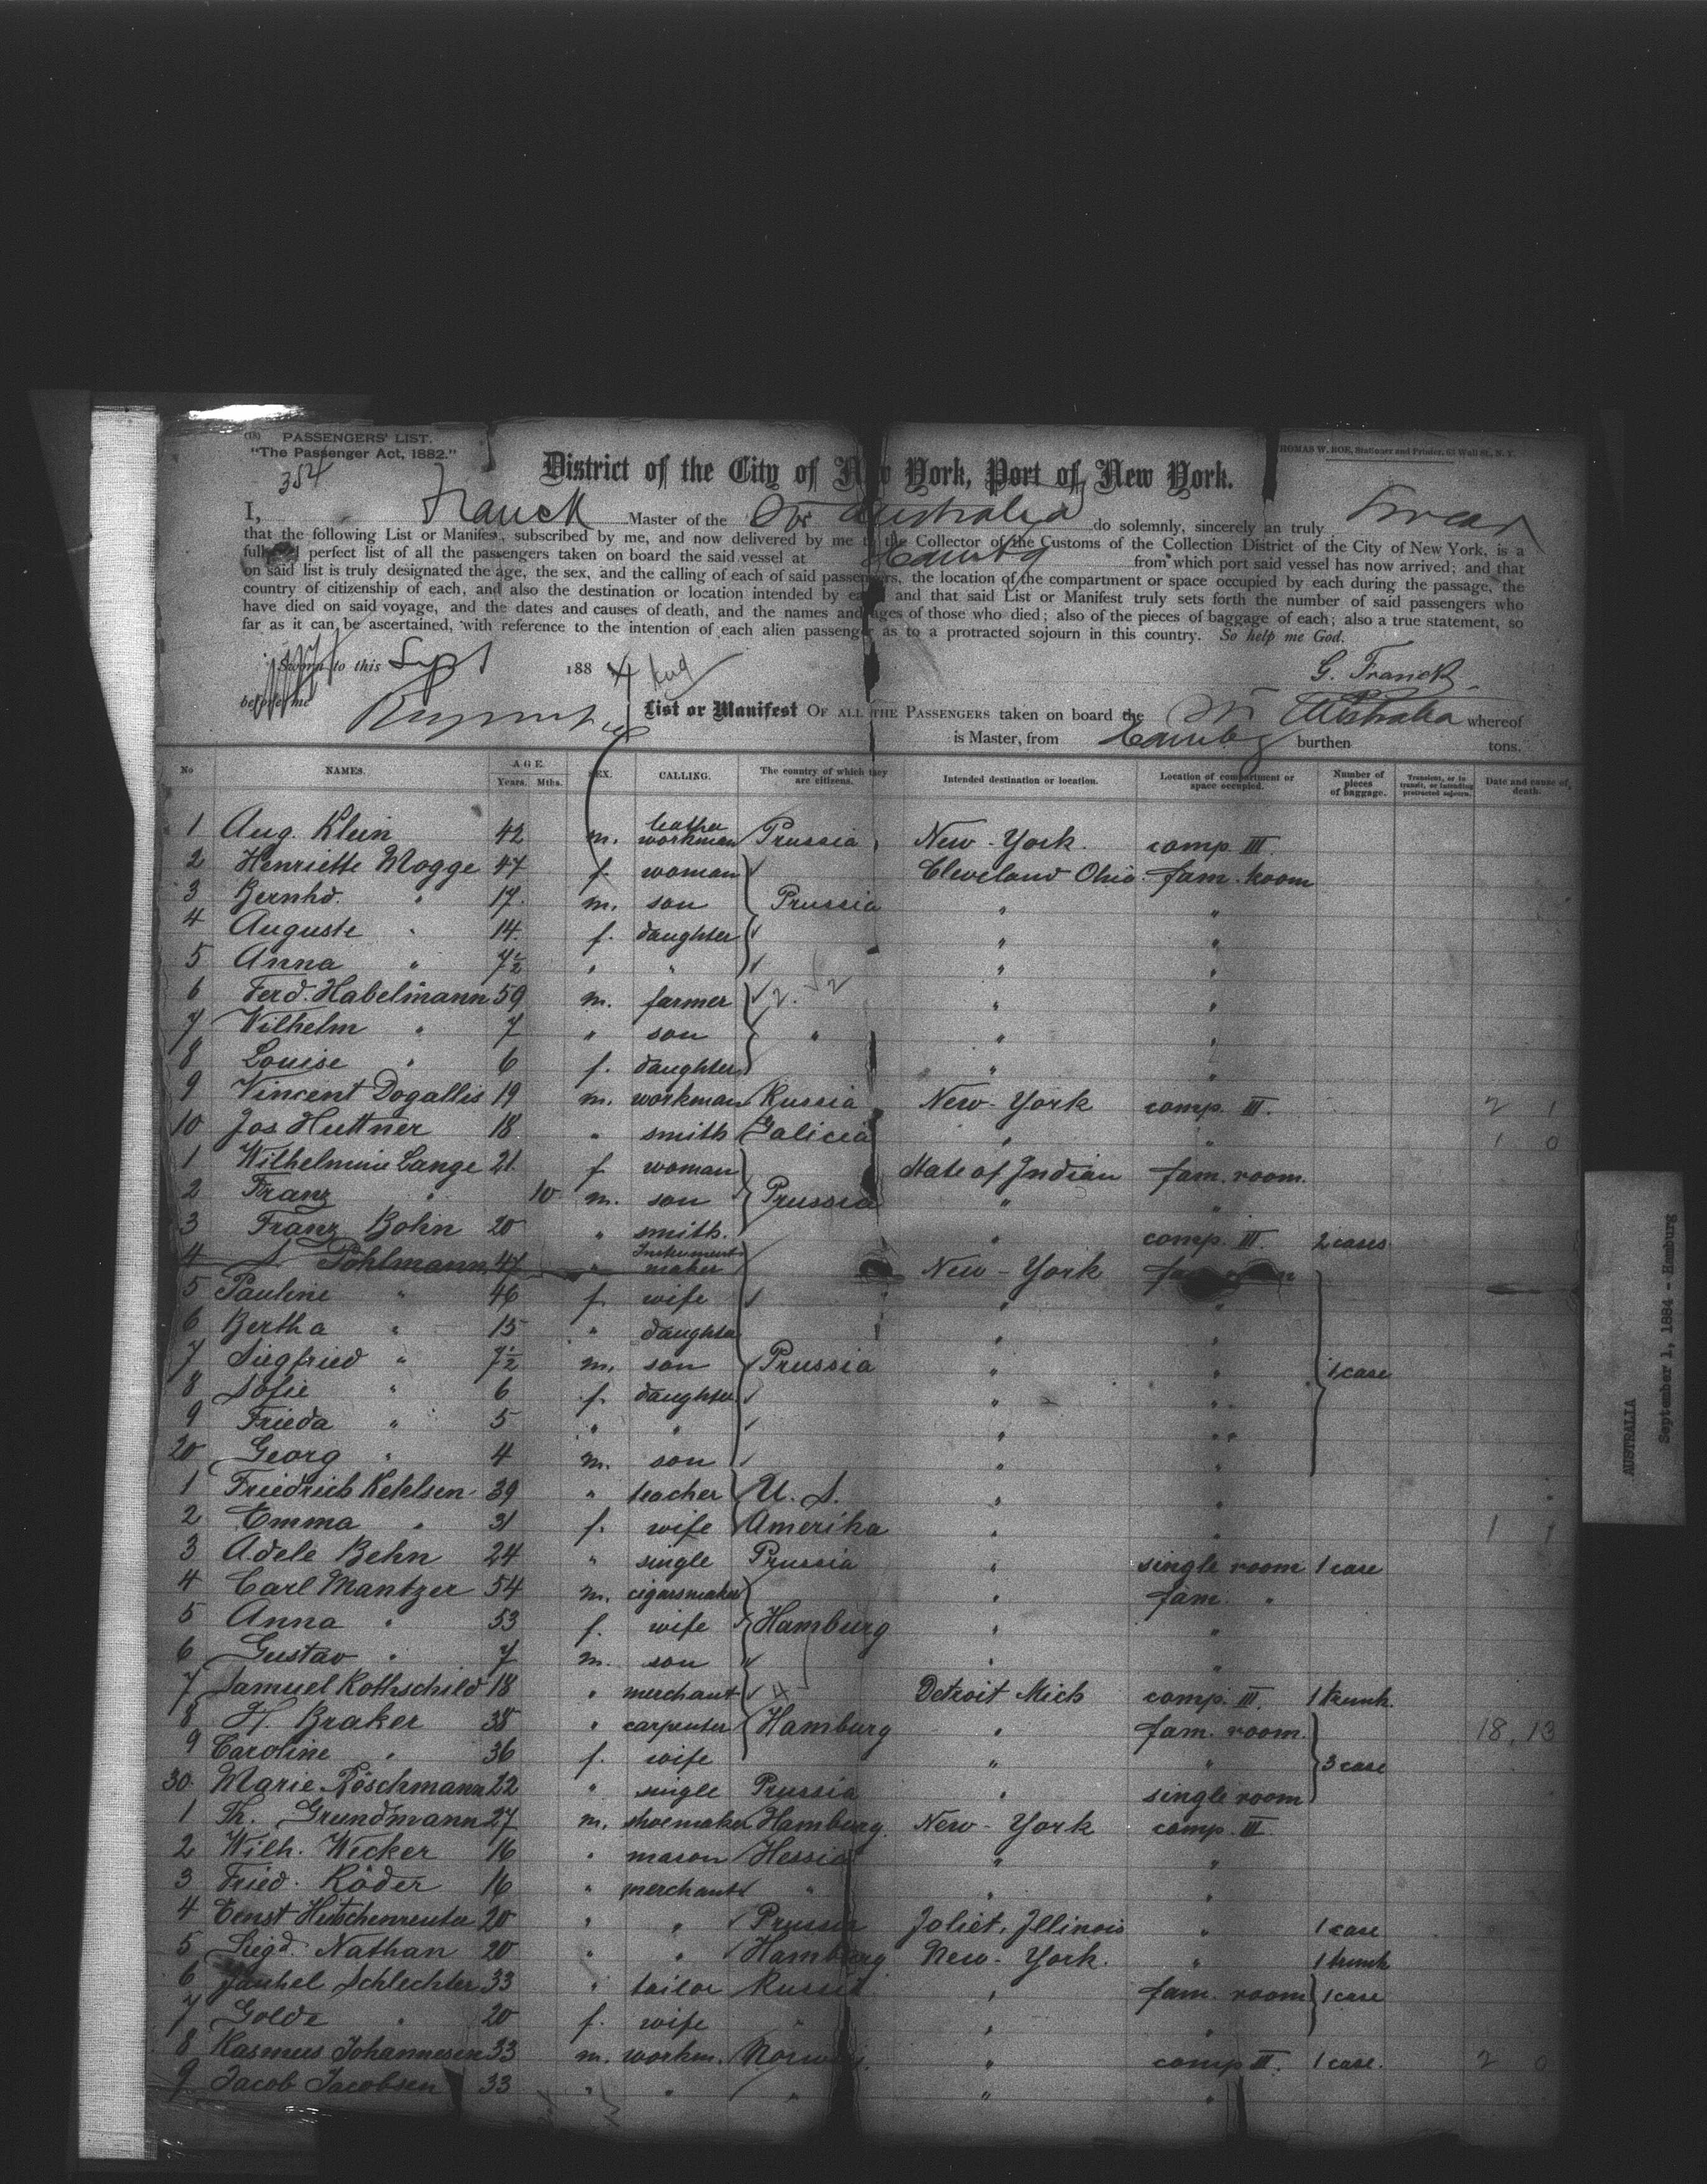 (18) PASSENGERS' LIST.
"The Passenger Act, 1882."
THOMAS W. ROE, Stationer and Printer, 63 Wall St., N. Y.
354
District of the City of New York, Port of New York.
I, Franck Master of the Str Australia do solemnly, sincerely an truly swear
that the following List or Manifest, subscribed by me, and now delivered by me to the Collector of the Customs of the Collection District of the City of New York, is a
full and perfect list of all the passengers taken on board the said vessel at Hambg from which port said vessel has now arrived; and that
on said list is truly designated the age, the sex, and the calling of each of said passengers, the location of the compartment or space occupied by each during the passage, the
country of citizenship of each, and also the destination or location intended by each and that said List or Manifest truly sets forth the number of said passengers who
have died on said voyage, and the dates and causes of death, and the names and ages of those who died; also of the pieces of baggage of each; also a true statement, so
far as it can be ascertained, with reference to the intention of each alien passenger as to a protracted sojourn in this country. So help me God.
Sworn to this Sept 1 1884
G. Franck
before me
List or Manifest OF ALL THE PASSENGERS taken on board the Str Australia whereof
is Master, from Hambg burthen tons.
No NAMES. AGE. Years. Mths. SEX. CALLING. The country of which they are citizens. Intended destination or location. Location of compartment or space occupied. Number of pieces of baggage. Transient, or in transit, or intending protracted sojourn. Date and cause of death.
1 Aug. Klein 42 m. leather workman Prussia New-York. comp. III
2 Henriette Mogge 47 f. woman Cleveland Ohio. fam. room
3 Bernhd. " 17. m. son Prussia " "
4 Auguste " 14. f. daughter " "
5 Anna " 7½ " " " "
6 Ferd. Habelmann 59 m. farmer " "
7 Wilhelm " 7 " son " " "
8 Louise " 6 f. daughter " "
9 Vincent Dogallis 19 m. workman Russia New-York comp. III. 2 1
10 Jos Huttner 18 " smith Galicia " " 1 0
1 Wilhelmine Lange 21. f. woman State of Indian fam. room.
2 Franz " 10 m. son Prussia " "
3 Franz Bohn 20 " smith. " comp. III. 2 cases
4 S. Pohlmann 47 " Instrument maker New-York
5 Pauline " 46 f. wife " "
6 Bertha " 15 " daughter " "
7 Siegfried " 7½ m. son Prussia " " 1 case
8 Sofie " 6 f. daughter " "
9 Frieda " 5 " " " "
20 Georg " 4 m. son " "
1 Friedrich Ketelsen 39 " teacher U. S. " "
2 Emma " 31 f. wife Amerika " " 1 1
3 Adele Behn 24 " single Prussia " single room 1 case
4 Carl Mantzer 54 m. cigarsmaker " fam. "
5 Anna " 53 f. wife Hamburg " "
6 Gustav " 7 m. son " "
7 Samuel Rothschild 18 " merchant Detroit Mich comp. III. 1 trunk
8 H. Braker 38 " carpenter Hamburg " fam. room. 18, 13
9 Caroline " 36 f. wife " " 3 case
30. Marie Röschmann 22 " single Prussia " single room
1 Th. Grundmann 27 m. shoemaker Hamburg. New-York comp. III
2 Wilh. Wecker 16 " mason Hessia " "
3 Fried. Röder 16 " merchant " " "
4 Ernst Hutschenreuter 20 " " Prussia Joliet, Illinois " 1 case
5 Siegd. Nathan 20 " " Hamburg New-York. " 1 trunk
6 Jankel Schlechter 33 " tailor Russia " fam. room 1 case
7 Golde " 20 f. wife " " "
8 Rasmus Johannesen 33 m. workm. Norway. " comp. III. 1 case. 2 0
9 Jacob Jacobsen 33 " " " " "
AUSTRALIA
September 1, 1884 - Hamburg